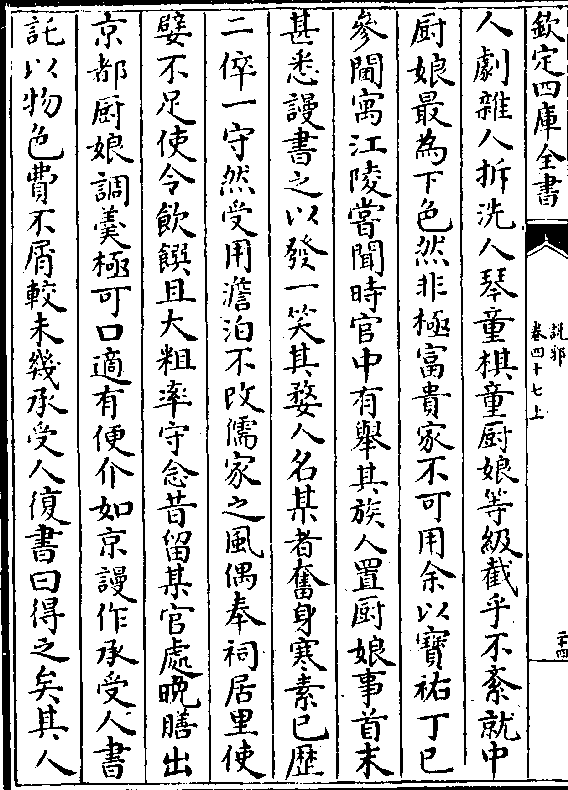 欽定四庫全書
說郛
卷四十七上
二十四
人劇雜人拆洗人琴童棋童厨娘等級截乎不紊就中
厨娘最為下色然非極富貴家不可用余以寳祐丁巳
參閫寓江陵嘗聞時官中有舉其族人置厨娘事首末
甚悉謾書之以發一笑其婺人名某者奮身寒素已歴
二倅一守然受用澹泊不改儒家之風偶奉祠居里使
嬖不足使令飲饌且大粗率守念昔留某官處晩膳出
京都厨娘調羹極可口適有便介如京謾作承受人書
託以物色費不屑較未幾承受人復書曰得之矣其人